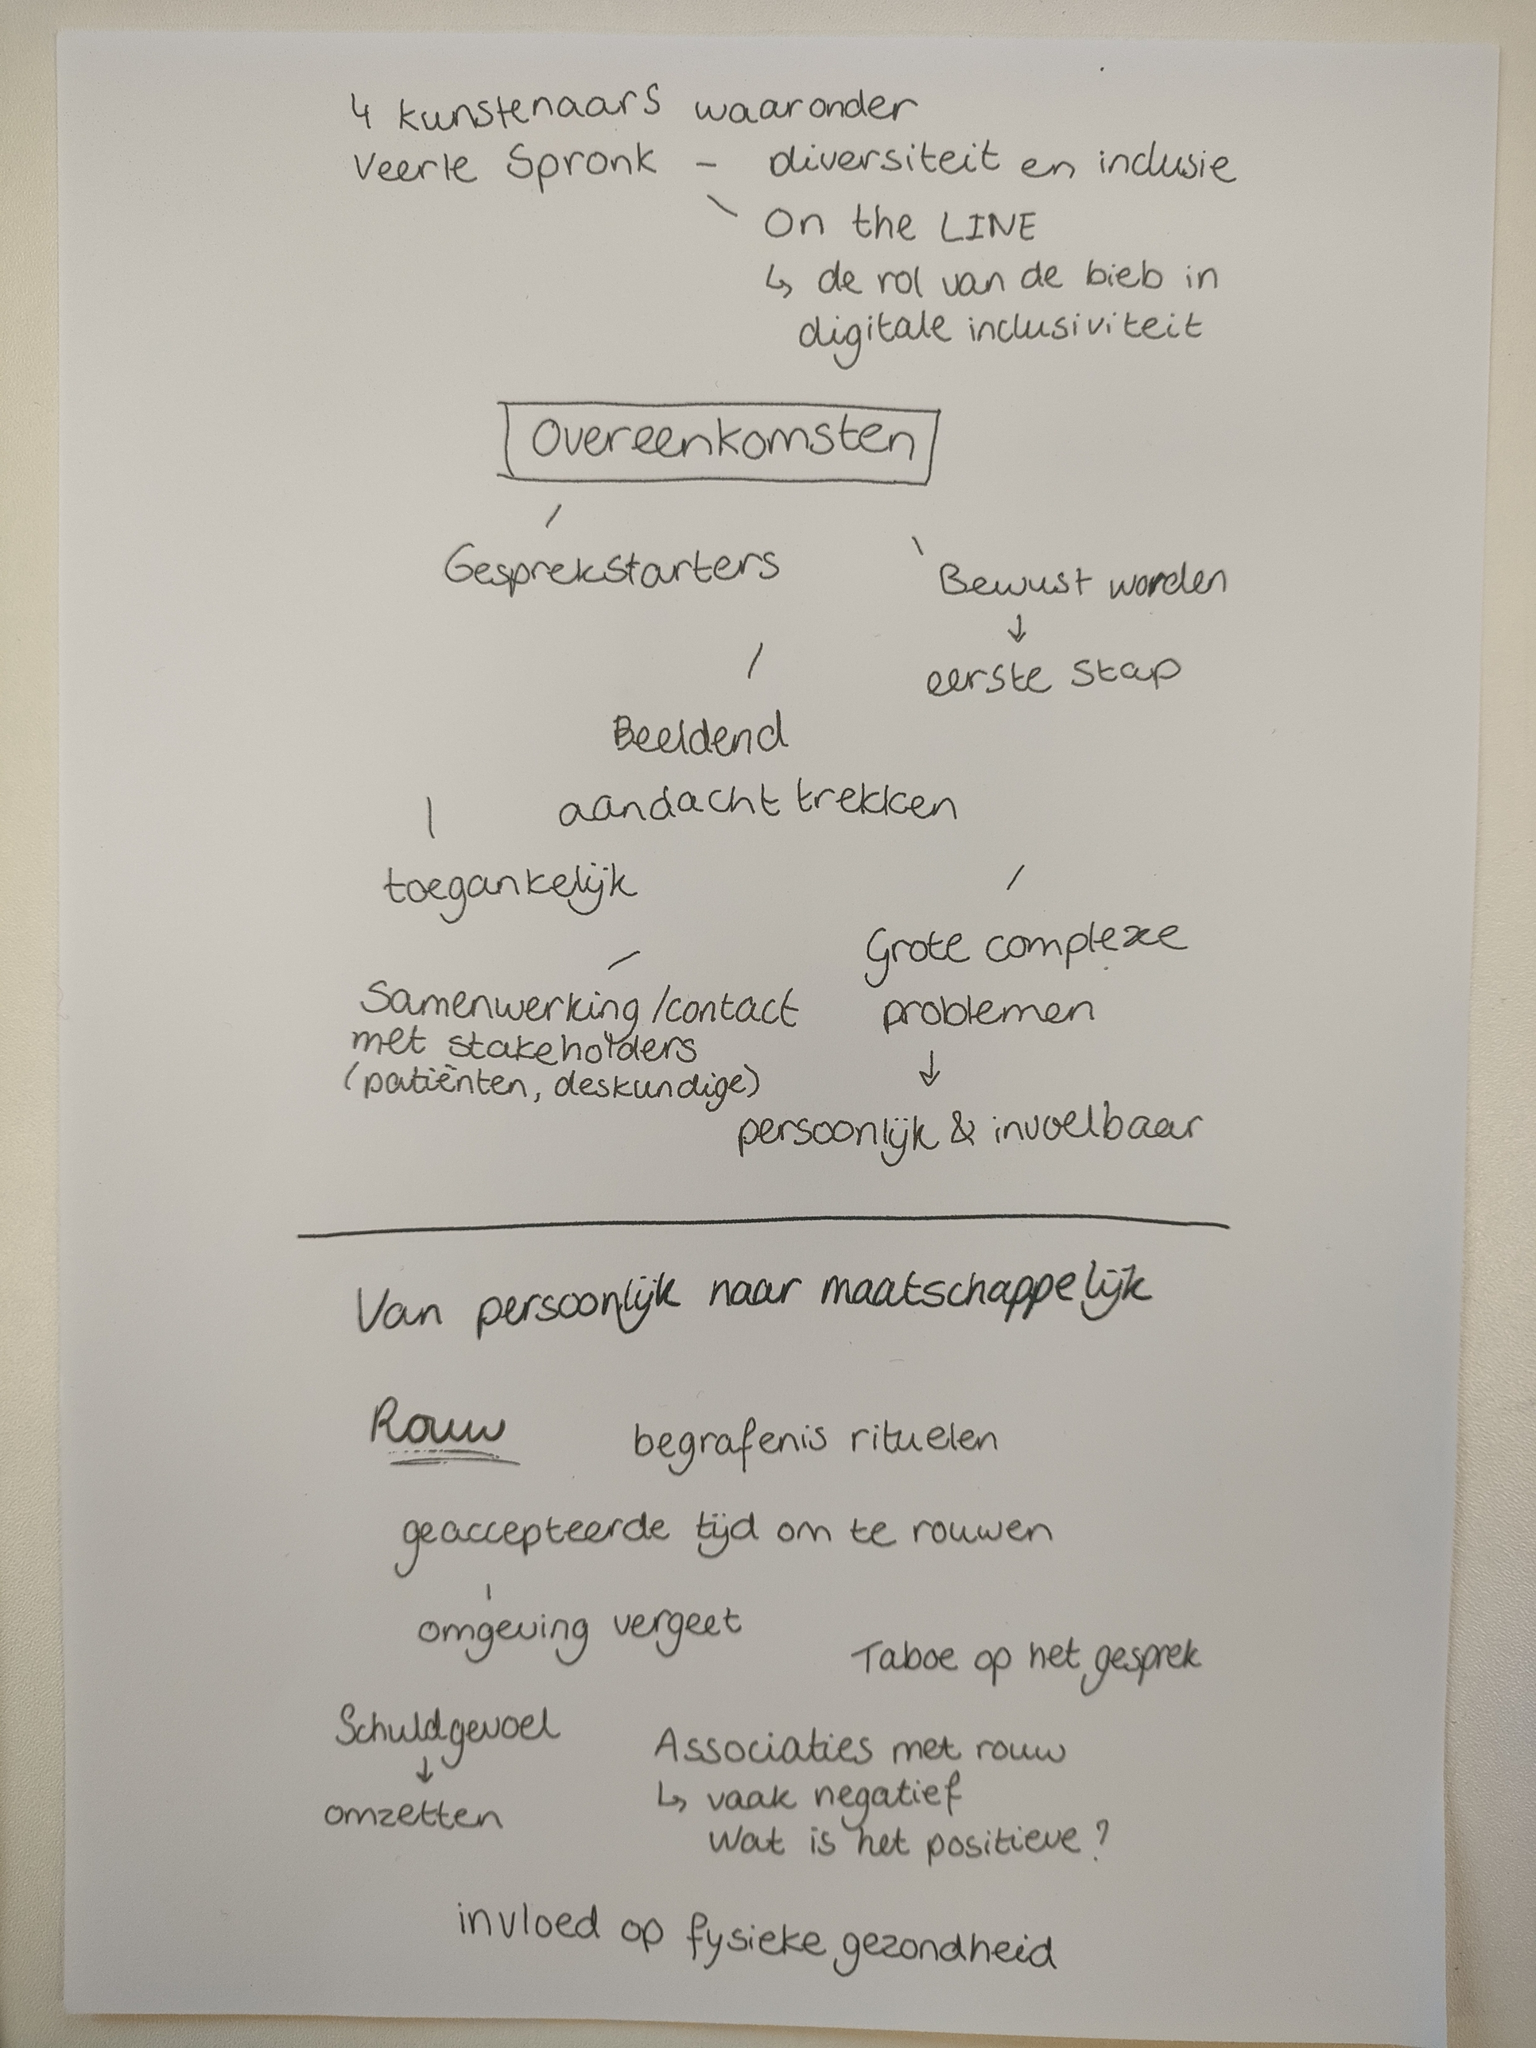 4 kunstenaars waaronder
Veerle Spronk - diversiteit en inclusie
On the LINE
↳ de rol van de bieb in
digitale inclusiviteit
Overeenkomsten
Gesprekstarters
Bewust worden
↓
eerste stap
Beeldend
aandacht trekken
toegankelijk
Grote complexe
problemen
↓
persoonlijk & invoelbaar
Samenwerking/contact
met stakeholders
(patiënten, deskundige)
Van persoonlijk naar maatschappelijk
Rouw
begrafenis rituelen
geaccepteerde tijd om te rouwen
omgeving vergeet
Taboe op het gesprek
Schuldgevoel
↓
omzetten
Associaties met rouw
↳ vaak negatief
Wat is het positieve?
invloed op fysieke gezondheid